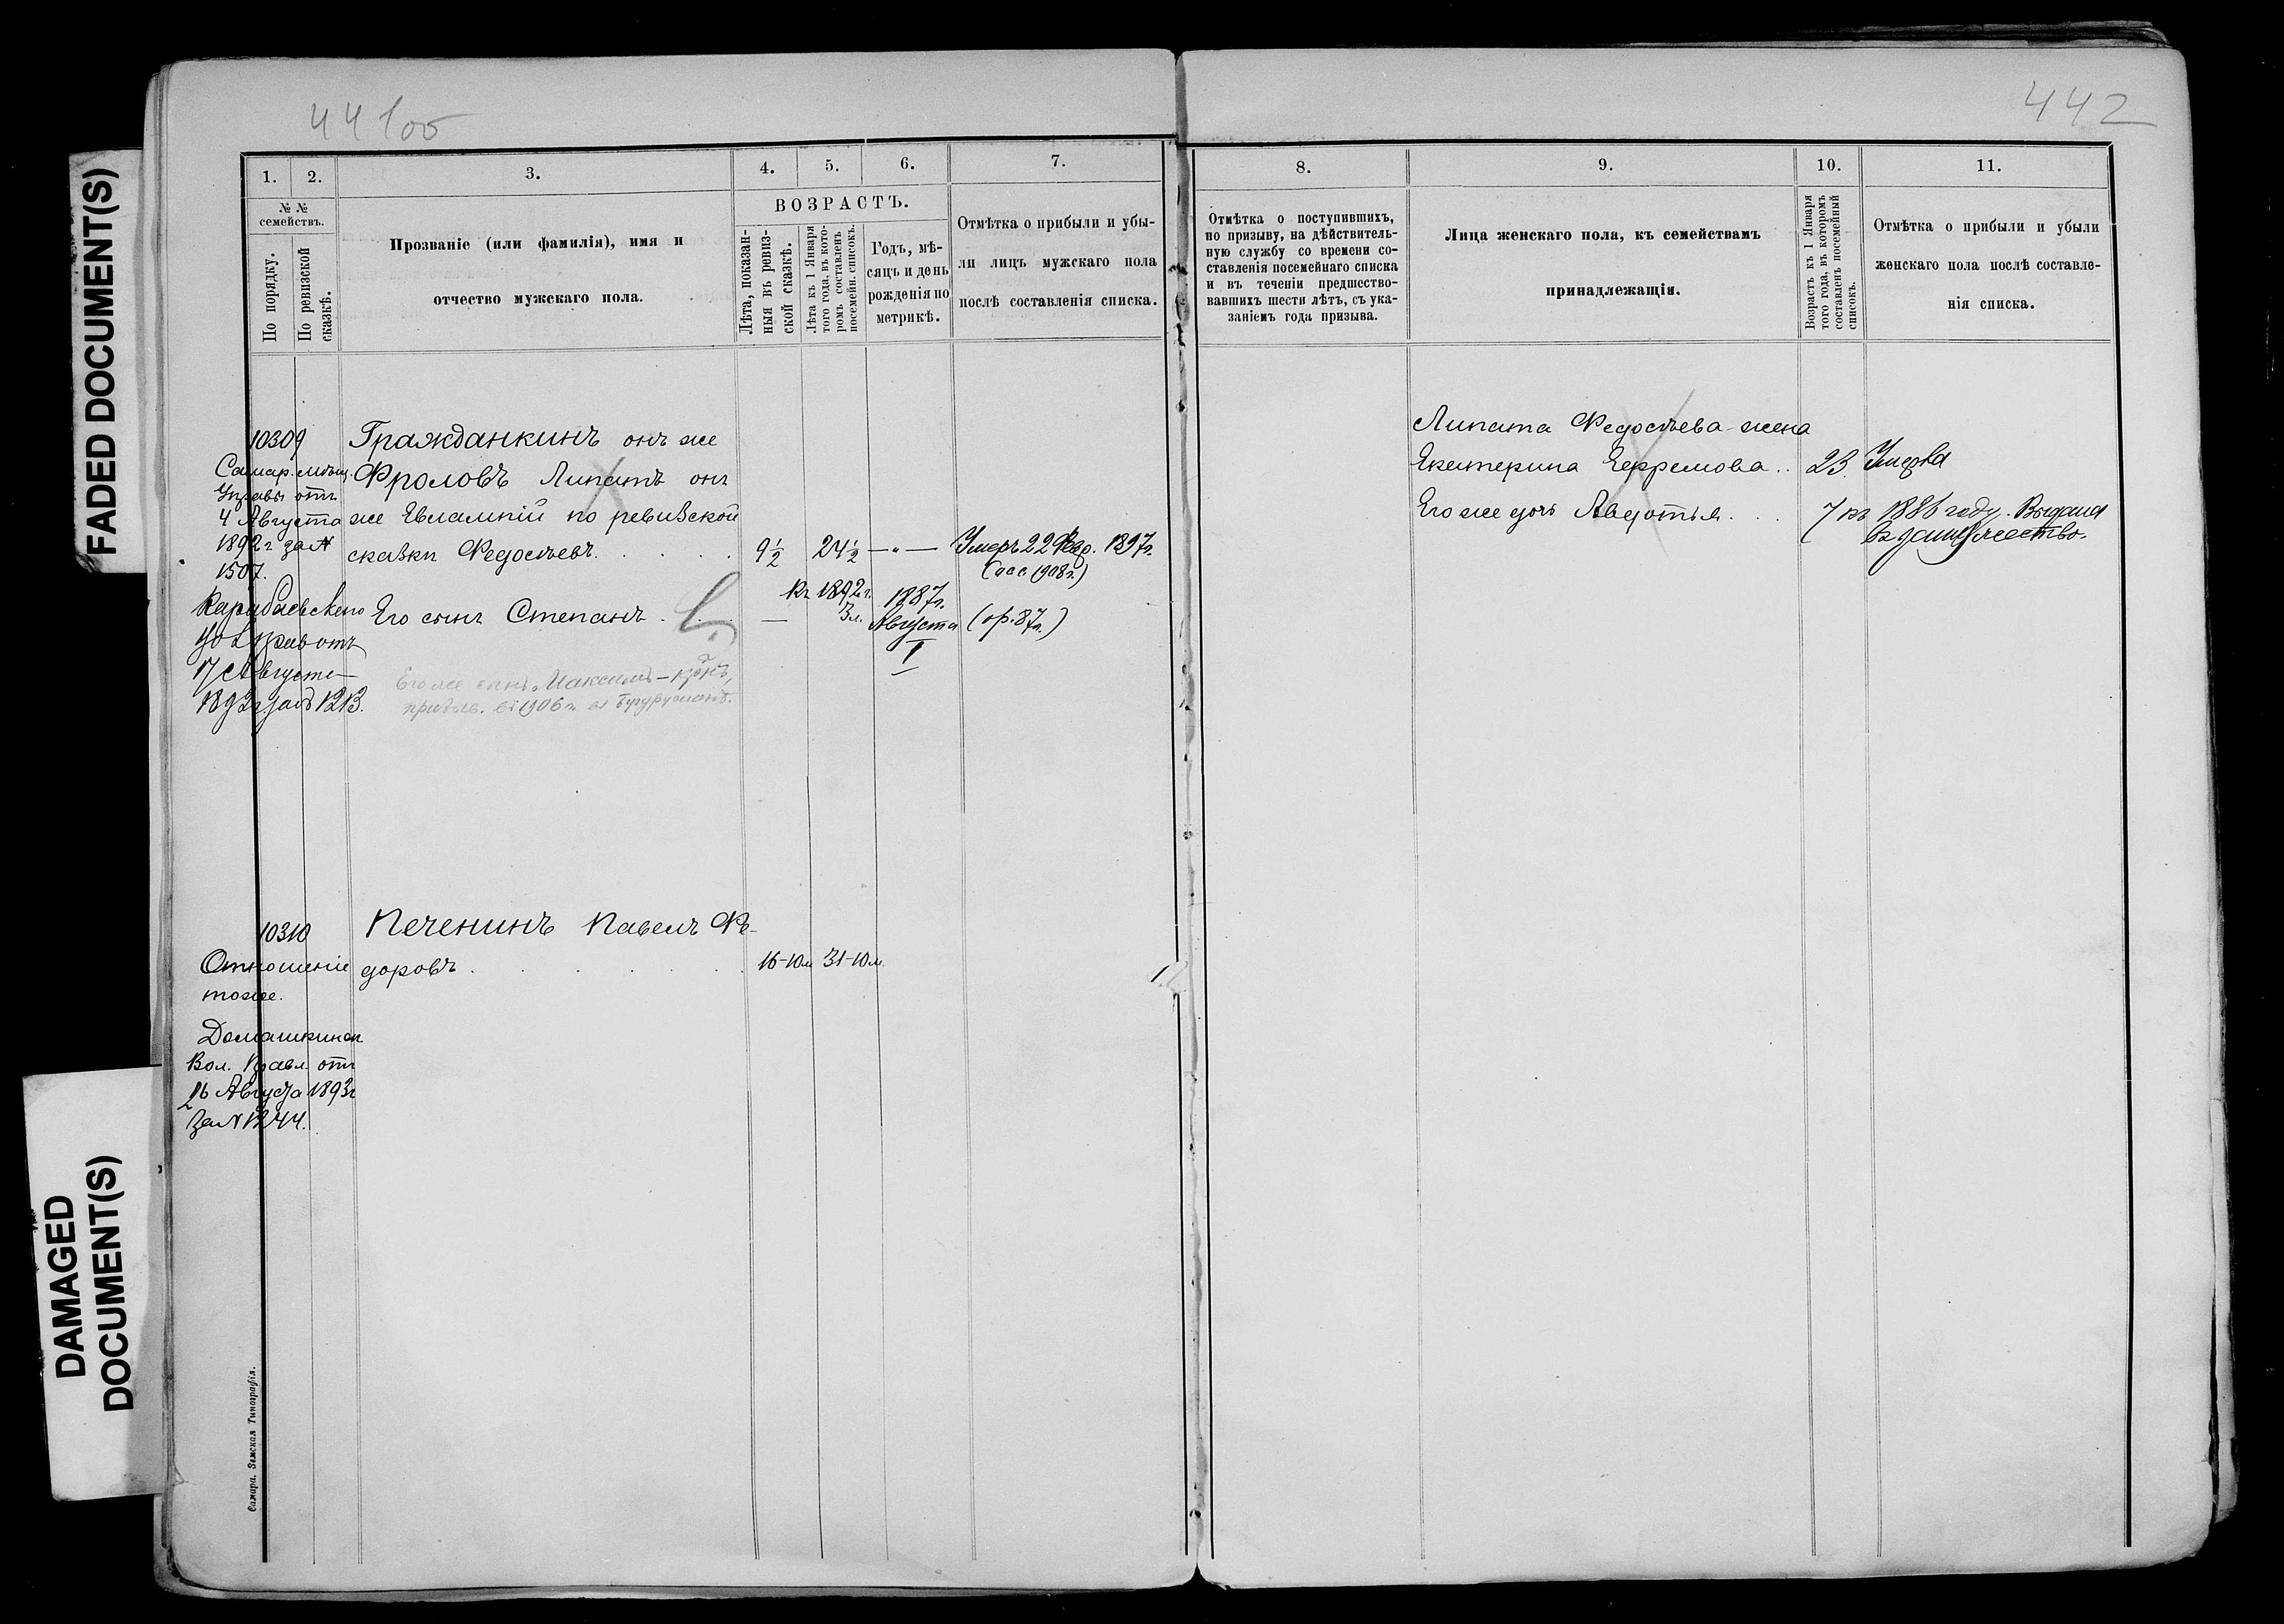 FADED DOCUMENT(S)
DAMAGED
DOCUMENT(S)
441об
442
1.
2.
3.
4.
5.
6.
7.
№ №
семействъ.
По порядку.
По ревизской
сказкѣ.
Прозваніе (или фамилія), имя и
отчество мужскаго пола.
ВОЗРАСТЪ.
Лѣта, показан-
ныя въ ревиз-
ской сказкѣ.
Лѣта къ 1 Января
того года, въ кото-
ромъ составленъ
посемейн. списокъ.
Годъ, мѣ-
сяцъ и день
рожденія по
метрикѣ.
Отмѣтка о прибыли и убы-
ли лицъ мужскаго пола
послѣ составленія списка.
10309
Самар. мѣщ.
Управы отъ
4 Августа
1892 г. за №
1507.
отъ
17 Августа
1892 г за № 1213.
Гражданкинъ онъ же
Фроловъ Липатъ онъ
же Евлампій по ревизской
сказки Федосѣевъ.
9½
24½
— „ —
Умеръ 22 Февр. 1897г.
1908 г.)
Его сынъ Степанъ
—
къ 1892 г.
3 л.
1887г.
Августа
1
(ор. 87г.)
Его же сынъ Максимъ
призыв. въ 1906 г. въ
10310
Отношеніе
тоже.
Домашкинск
Вол. Правл. отъ
26 Августа 1893г
за № 1244.
Печенинъ Павелъ Фе-
доровъ
16-10м
31-10м.
Самара. Земская Типографія.
8.
9.
10.
11.
Отмѣтка о поступившихъ,
по призыву, на дѣйствитель-
ную службу со времени со-
ставленія посемейнаго списка
и въ теченіи предшество-
вавшихъ шести лѣтъ, съ ука-
заніемъ года призыва.
Лица женскаго пола, къ семействамъ
принадлежащія.
Возрастъ къ 1 Января
того года, въ которомъ
составленъ посемейный
списокъ.
Отмѣтка о прибыли и убыли
женскаго пола послѣ составле-
нія списка.
Липата Федосѣева жена
Екатерина Ефремова
23.
Умерла
Его же дочь Авдотья
7
въ 1886 году. Выдана
въ замужество.